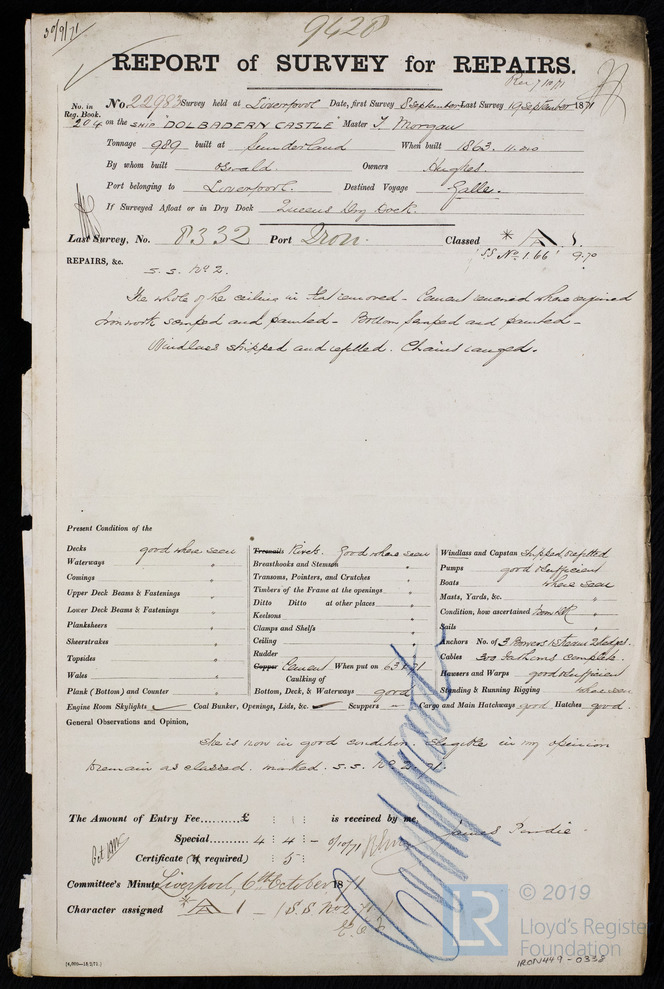 30/9/71
9428
REPORT of SURVEY for REPAIRS.
Rec 7/10/71
No. in Reg. Book. No. 22983 Survey held at Liverpool Date, first Survey 8 September Last Survey 19 September 1871
204 on the SHIP "DOLBADERN CASTLE" Master T. Morgan
Tonnage 989 built at Sunderland When built 1863. 11.mo
By whom built Oswald. Owners Hughes.
Port belonging to Liverpool. Destined Voyage Galle.
If Surveyed Afloat or in Dry Dock Queens Dry Dock.
Last Survey, No. 8332 Port Iron. Classed * A 1.
SS No. 1.66 9.70
REPAIRS, &c.
S.S. No 2.
The whole of the ceiling in flat removed - Cement renewed where required
Ironwork scraped and painted - Bottom scraped and painted -
Windlass stripped and refitted. Chains ranged.
Present Condition of the
Decks good where seen
Waterways "
Comings "
Upper Deck Beams & Fastenings "
Lower Deck Beams & Fastenings "
Planksheers "
Sheerstrakes "
Topsides "
Wales "
Plank (Bottom) and Counter "
Treenails Rivets. Good where seen
Breasthooks and Stemson "
Transoms, Pointers, and Crutches "
Timbers of the Frame at the openings "
Ditto Ditto at other places "
Keelsons "
Clamps and Shelfs "
Ceiling "
Rudder "
Copper Cement When put on 63 & 71
Caulking of
Bottom, Deck, & Waterways good
Windlass and Capstan stripped & refitted
Pumps good & sufficient
Boats where seen
Masts, Yards, &c. "
Condition, how ascertained from DK
Sails "
Anchors No. of 3 Bowers 1 stream 2 kedges.
Cables 300 fathoms complete.
Hawsers and Warps good & sufficient
Standing & Running Rigging where seen
Engine Room Skylights Coal Bunker, Openings, Lids, &c. Scuppers Cargo and Main Hatchways good Hatches good.
General Observations and Opinion,
She is now in good condition. Eligible in my opinion
to remain as classed. marked. S.S. No 2. 71.
The Amount of Entry Fee......... £ : : is received by me,
Special......... 4 : 4 : - 6/10/71 James Perdie.
Certificate (if required) : 5 :
Committee's Minute Liverpool, 6th October 1871
Character assigned * A 1 - S.S No 2 71
(4,000—18/2/71.)
© 2019
LR
Lloyd's Register
Foundation
IRON449-0338